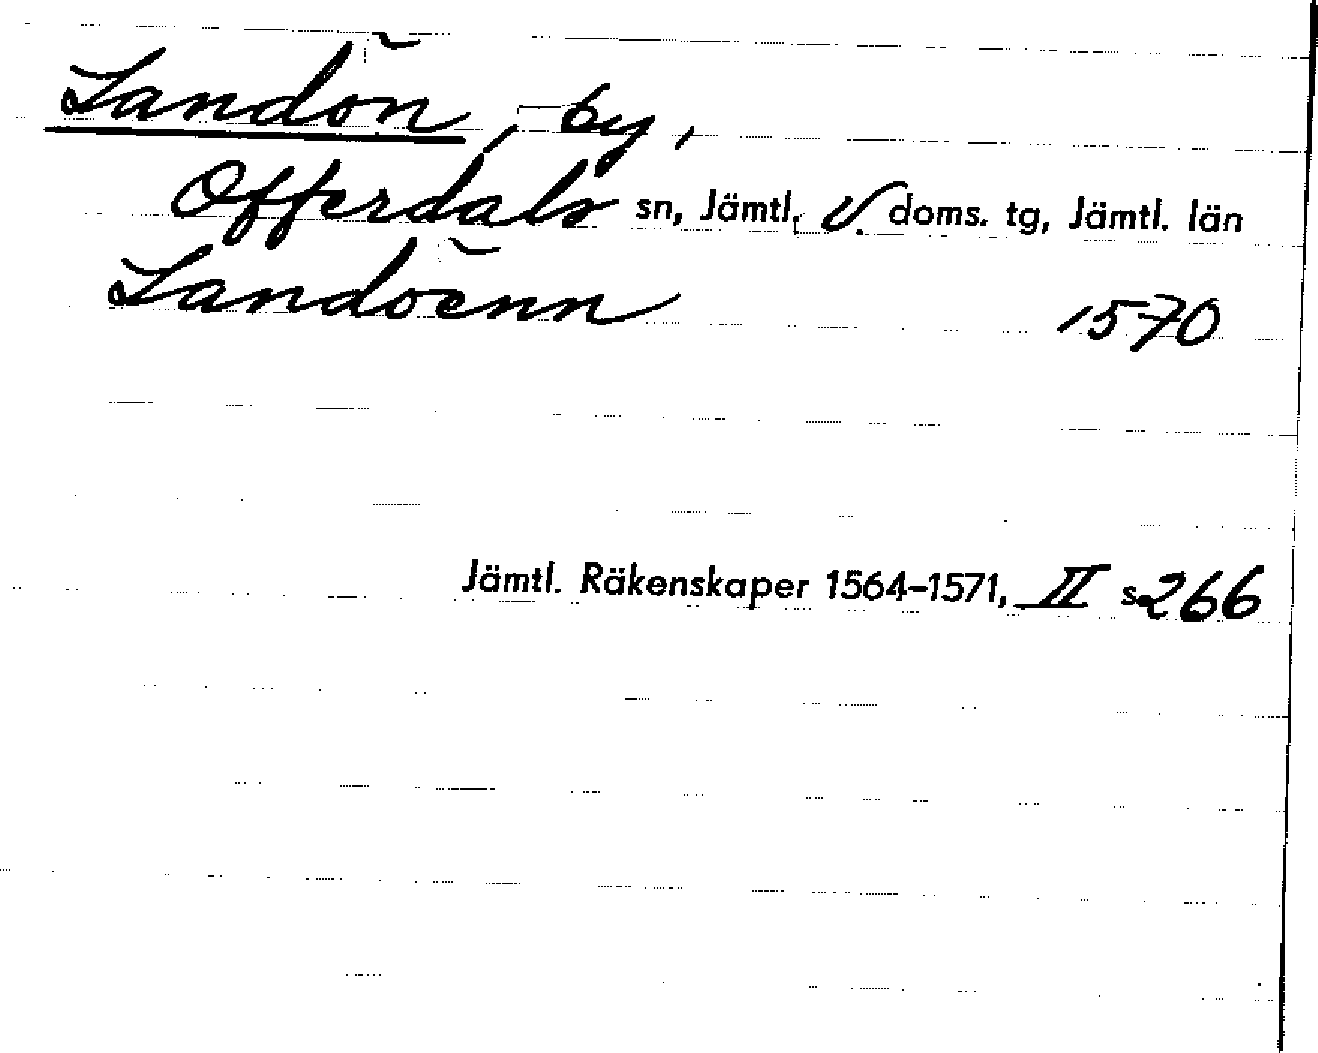 Landön, by,
Offerdals sn, Jämtl. v. doms. tg, Jämtl. län
Landöenn 1570
Jämtl. Räkenskaper 1564-1571, II s. 266